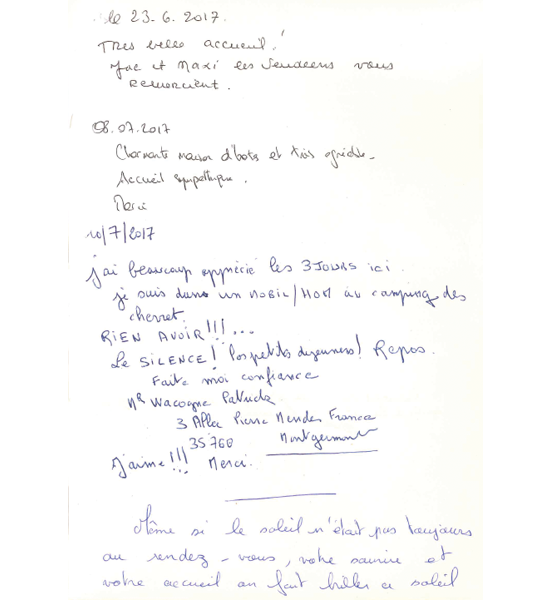 le 23-6-2017.
Tres belle accueil!
Jac et Maxi les Vendeens vous
remercient.
08.07.2017
Charmante maison d'hots et très agréable.
Accueil sympathique.
Merci
10/7/2017
j'ai beaucoup apprécié les 3 JOURS ici.
je suis dans un MOBIL/HOM au camping des
chevret.
RIEN AVOIR!!!...
Le SILENCE! les petits dejeuners! Repos.
Faite moi confiance
Mr Wacogne Patrick
3 Allée Pierre Mendes France
35760 Montgermont
J'aime!!! Merci.
Même si le soleil n'était pas toujours
au rendez-vous, votre sourire et
votre accueil on fait briller ce soleil